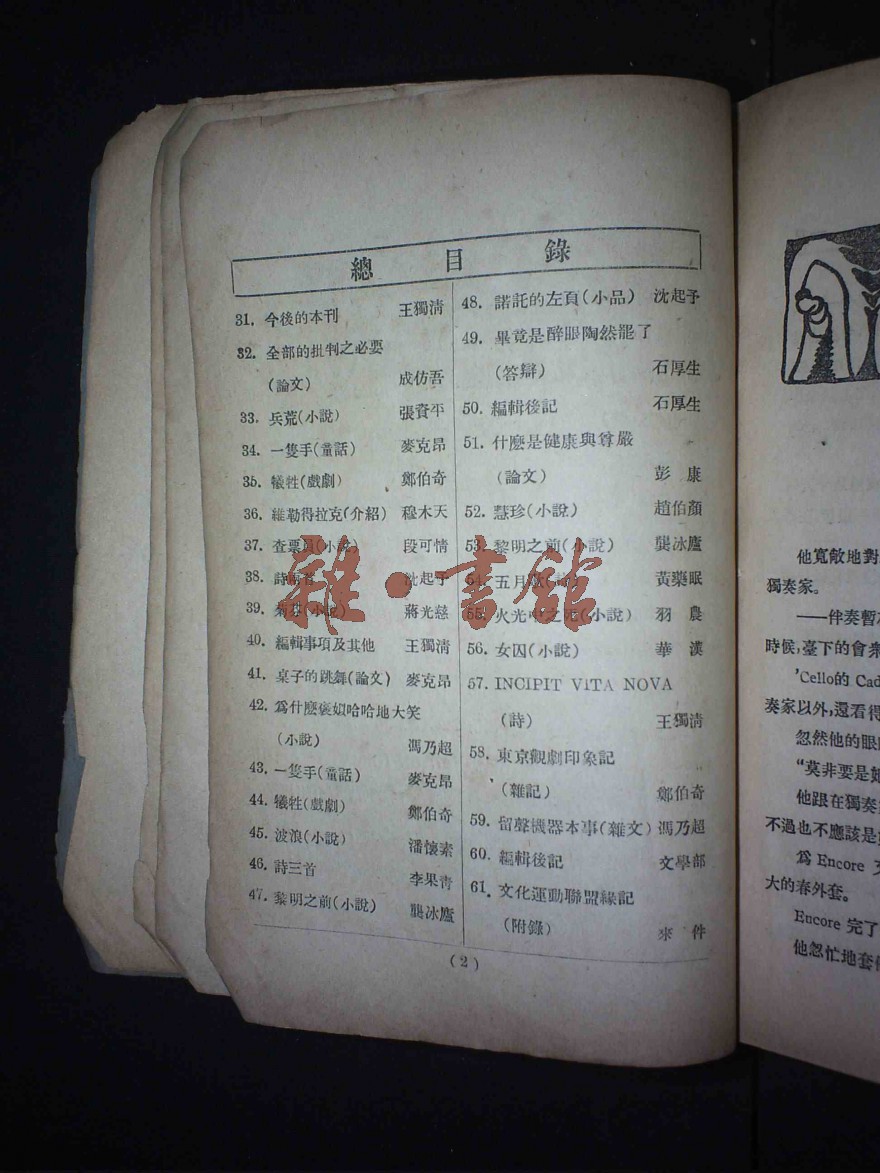 總目錄
31. 今後的本刊 王獨清
32. 全部的批判之必要
(論文) 成仿吾
33. 兵荒(小說) 張資平
34. 一隻手(童話) 麥克昂
35. 犧牲(戲劇) 鄭伯奇
36. 維勒得拉克(介紹) 穆木天
37. 查票員(小說) 段可情
38. 詩兩首 沈起予
39. 菊芬(小說) 蔣光慈
40. 編輯事項及其他 王獨淸
41. 桌子的跳舞(論文) 麥克昂
42. 爲什麼褒姒哈哈地大笑
(小說) 馮乃超
43. 一隻手(童話) 麥克昂
44. 犧牲(戲劇) 鄭伯奇
45. 波浪(小說) 潘懷素
46. 詩三首 李果靑
47. 黎明之前(小說) 龔冰廬
48. 諾託的左頁(小品) 沈起予
49. 畢竟是醉眼陶然罷了
(答辯) 石厚生
50. 編輯後記 石厚生
51. 什麼是健康與尊嚴
(論文) 彭康
52. 慧珍(小說) 趙伯顏
53. 黎明之前(小說) 龔冰廬
54. 五月歌(詩) 黃藥眠
55. 火光中之死(小說) 羽農
56. 女囚(小說) 華漢
57. INCIPIT VITA NOVA
(詩) 王獨淸
58. 東京觀劇印象記
(雜記) 鄭伯奇
59. 留聲機器本事(雜文) 馮乃超
60. 編輯後記 文學部
61. 文化運動聯盟緣記
(附錄) 來件
(2)
雜·書館
他寬敞地對
獨奏家。
——伴奏暫
時候,臺下的會衆
'Cello的 Cad
奏家以外,還看得
忽然他的眼
“莫非要是她
他跟在獨奏
不過也不應該是
爲 Encore
大的春外套。
Encore 完了
他忽忙地套